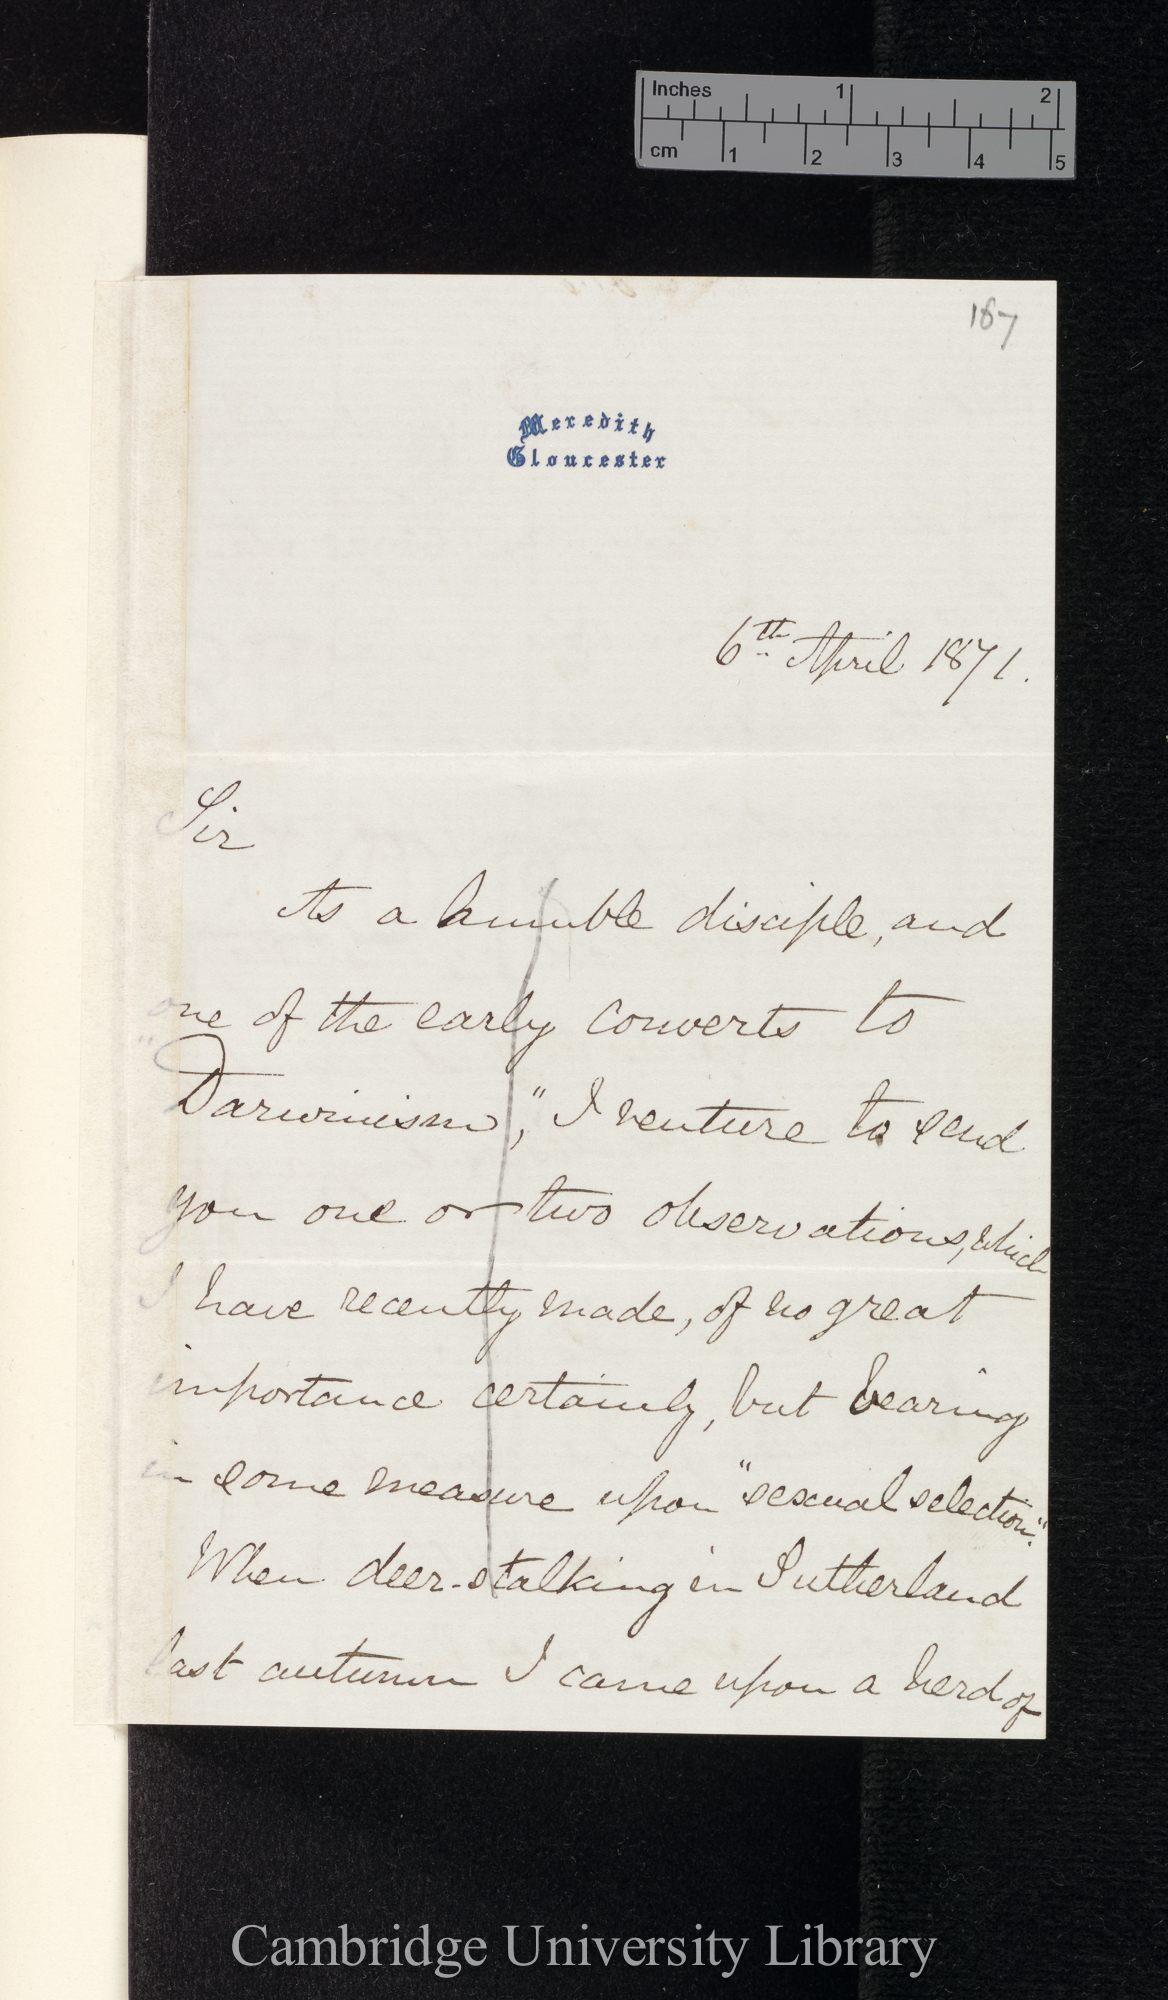 Inches 1 2
cm 1 2 3 4 5
187
Meredith
Gloucester
6th April 1871.
Sir
As a humble disciple, and
one of the early converts to
"Darwinism," I venture to send
you one or two observations, which
I have recently made, of no great
importance certainly, but bearing
in some measure upon "sexual selection".
When deer-stalking in Sutherland
last autumn I came upon a herd of
Cambridge University Library